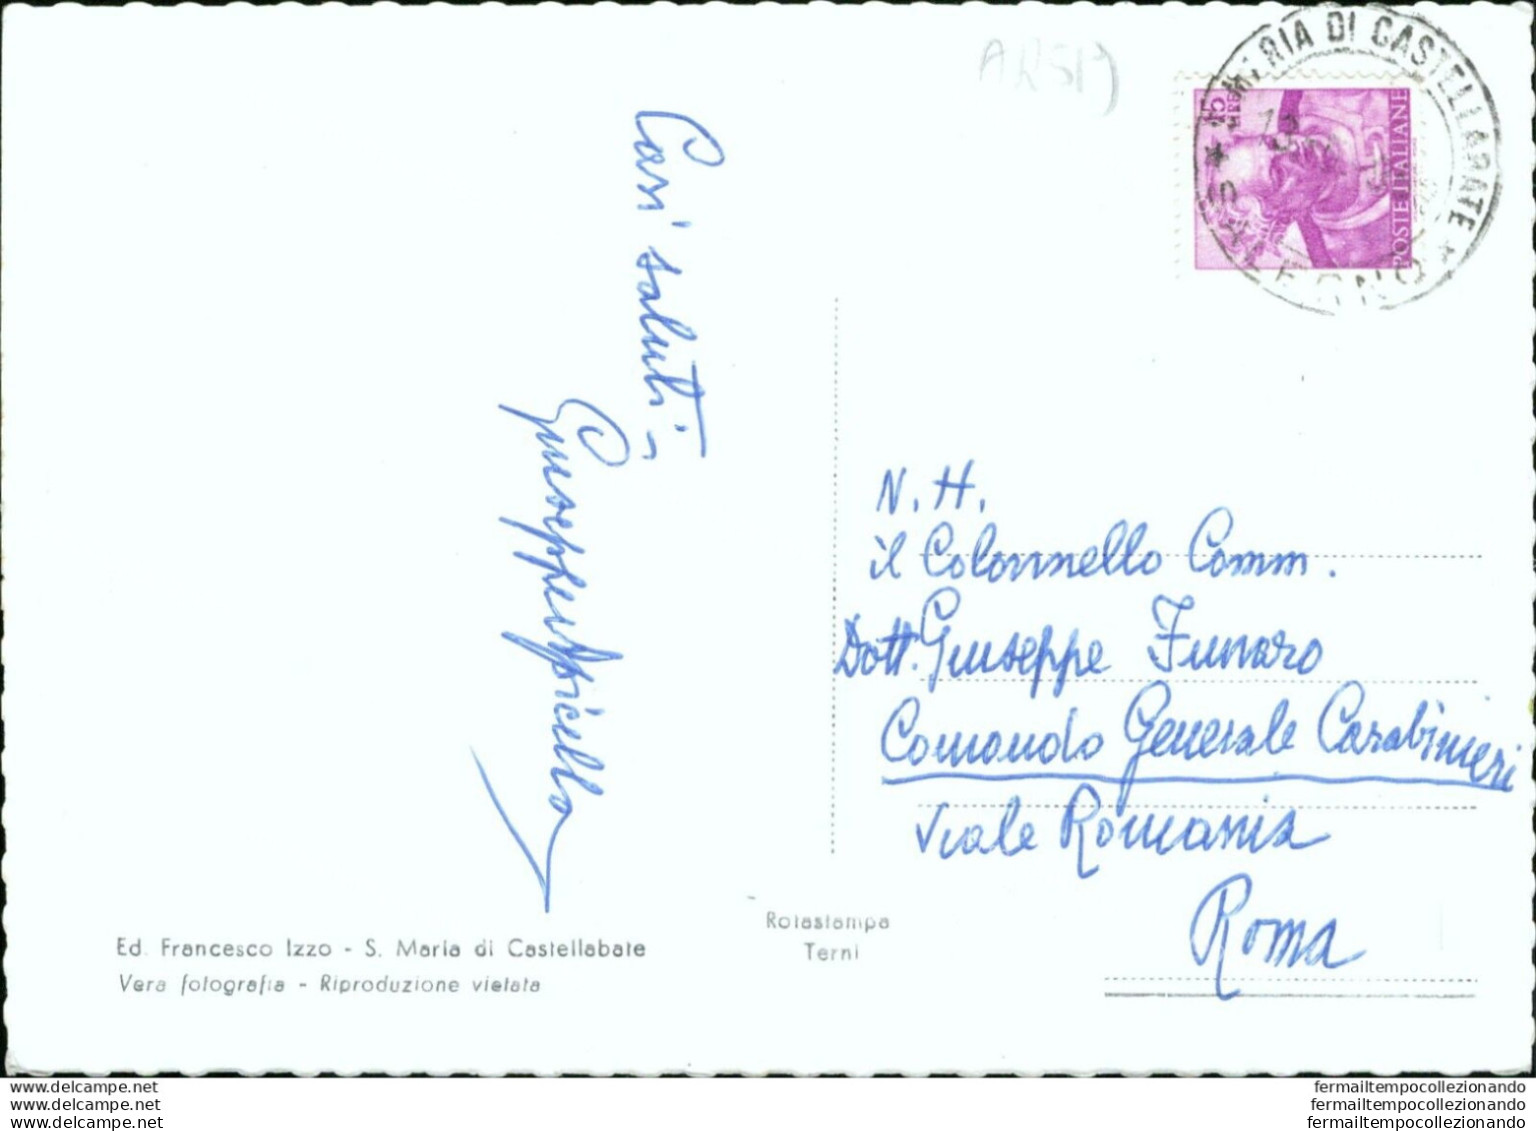 S. MARIA DI CASTELLABATE
* SALERNO *
15 LIRE
POSTE ITALIANE
Cari saluti
Giuseppe
N. H.
il Colonnello Comm.
Dott. Giuseppe Funaro
Comando Generale Carabinieri
Viale Romania
Roma
Rotastampa
Terni
Ed. Francesco Izzo - S. Maria di Castellabate
Vera fotografia - Riproduzione vietata
www.delcampe.net
www.delcampe.net
www.delcampe.net
fermailtempocollezionando
fermailtempocollezionando
fermailtempocollezionando